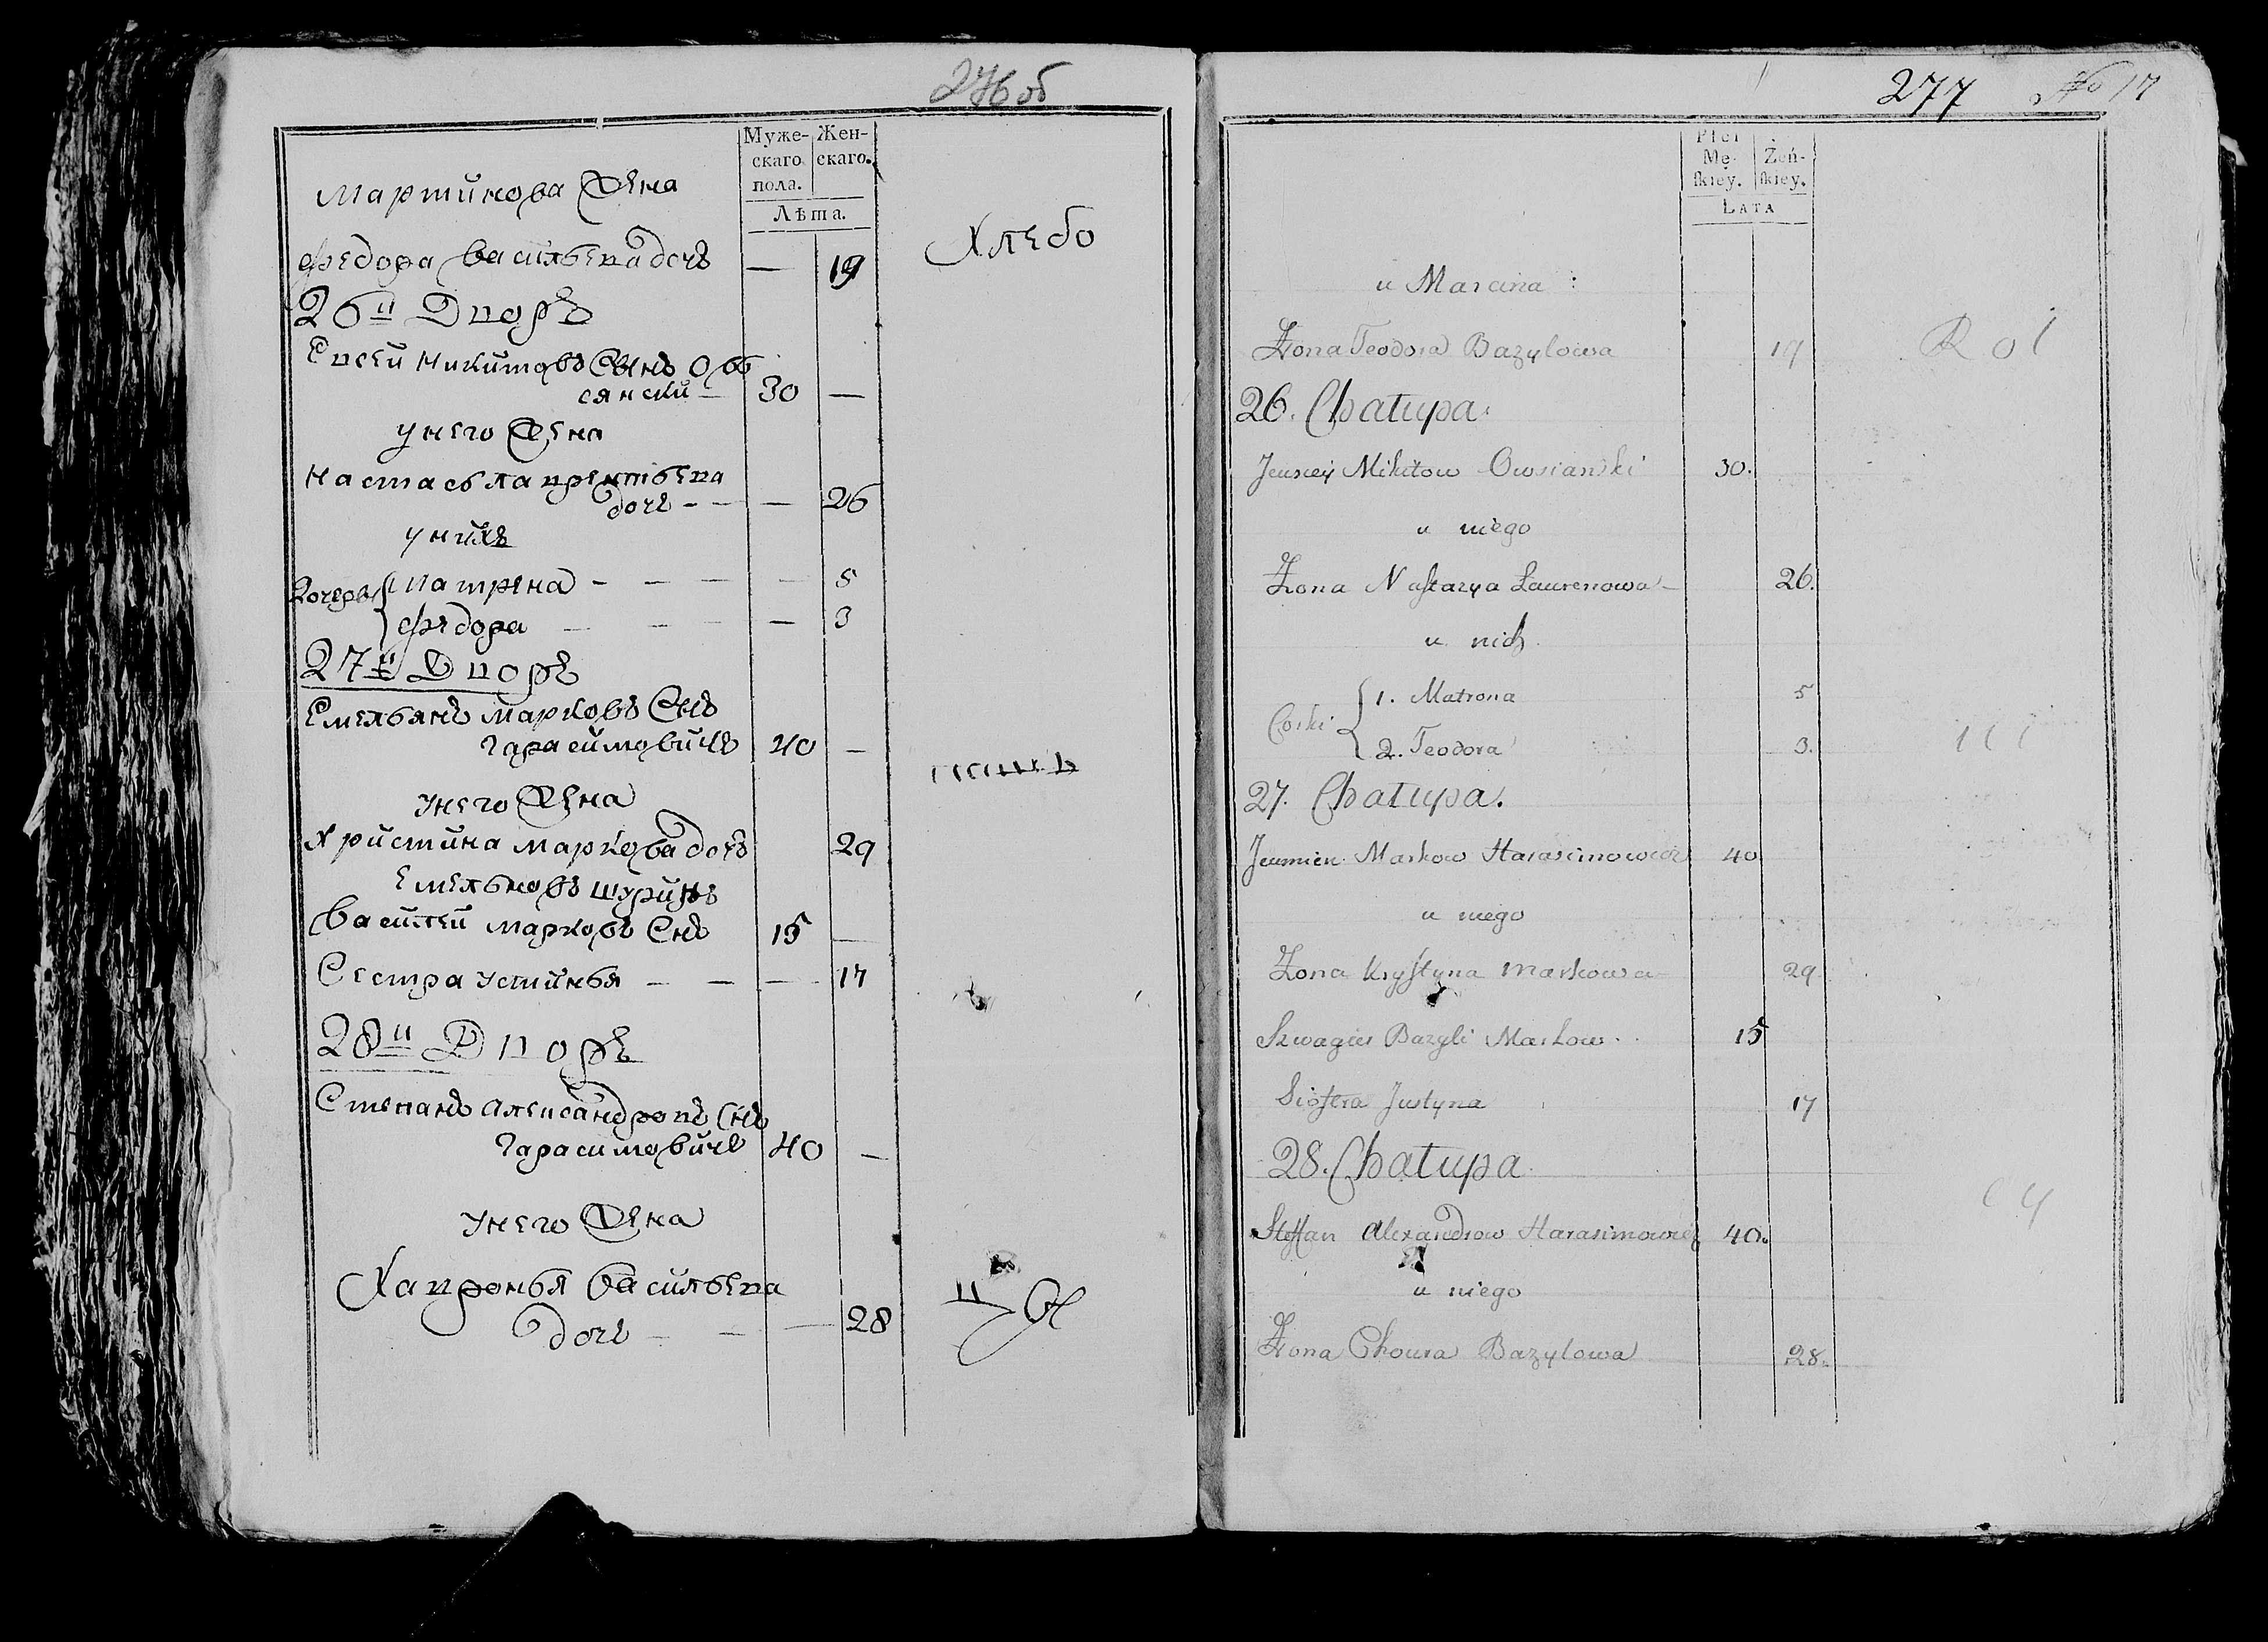 276 об
Муже-
скаго
пола.
Жен-
скаго.
Лѣта.
Мартинова Жена
Федора Васильева дочь — 19
Хлебо
26й Дворъ
Евсей Никитовъ Сынъ Ов
сянский 30 —
у него Жена
Настасья Лаврентьева
дочь - - — 26
у нихъ
Дочери Матрена - - - — 5
Федора - - - — 3
27й Дворъ
Емельянъ Марковъ Снъ
Гарасимовичъ 40 —
паш
у него Жена
Христина Маркова дочь 29
Емельновъ шуринъ
Василей Марковъ Снъ 15 —
Сестра Устинья — — — 17
28й Дворъ
Степанъ Александровъ Снъ
Гарасимовичъ 40 —
у него Жена
Хавронья Васильева
дочь — — — 28
277 No 17
Płci
Mę-
skiey.
Żeń-
skiey.
LATA
u Marcina :
Żona Teodora Bazylowa 19
Rol
26. Chałupa.
Jewsiey Mikitow Owsianski 30.
u niego
Żona Nastazya Laurenowa - 26.
u nich
Corki 1. Matrona 5
2. Teodora 3.
27. Chałupa.
Jeumien Markow Harasimowicz 40
u niego
Żona Krystyna Markowa - 29
Szwagier Bazyli Markow. 15
Siostra Justyna 17
28. Chałupa
Steffan Alexandrow Harasimowicz 40.
u niego
Żona Chowra Bazylowa 28.